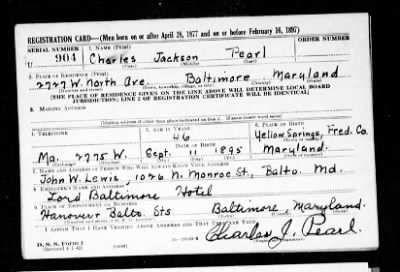 REGISTRATION CARD—(Men born on or after April 28, 1877 and on or before February 16, 1897)
SERIAL NUMBER 1. NAME (Print) ORDER NUMBER
U 904 Charles Jackson Pearl
(First) (Middle) (Last)
2. PLACE OF RESIDENCE (Print)
2727 W. North Ave. Baltimore Maryland
(Number and street) (Town, township, village, or city) (County) (State)
[THE PLACE OF RESIDENCE GIVEN ON THE LINE ABOVE WILL DETERMINE LOCAL BOARD
JURISDICTION; LINE 2 OF REGISTRATION CERTIFICATE WILL BE IDENTICAL]
3. MAILING ADDRESS
[Mailing address if other than place indicated on line 2. If same insert word same]
4. TELEPHONE 5. AGE IN YEARS 6. PLACE OF BIRTH
46 Yellow Springs, Fred. Co.
DATE OF BIRTH (Town or county)
Ma. 2775 W. Sept. 11 1895 Maryland.
(Mo.) (Day) (Yr.) (State or country)
7. NAME AND ADDRESS OF PERSON WHO WILL ALWAYS KNOW YOUR ADDRESS
John W. Lewis, 1026 N. Monroe St., Balto. Md.
8. EMPLOYER'S NAME AND ADDRESS
Lord Baltimore Hotel
9. PLACE OF EMPLOYMENT OR BUSINESS
Hanover + Balto Sts Baltimore, Maryland.
(Number and street or R. F. D. number) (Town) (County) (State)
I AFFIRM THAT I HAVE VERIFIED ABOVE ANSWERS AND THAT THEY ARE TRUE.
D. S. S. Form 1 Charles J. Pearl.
(Revised 4-1-42) (over)